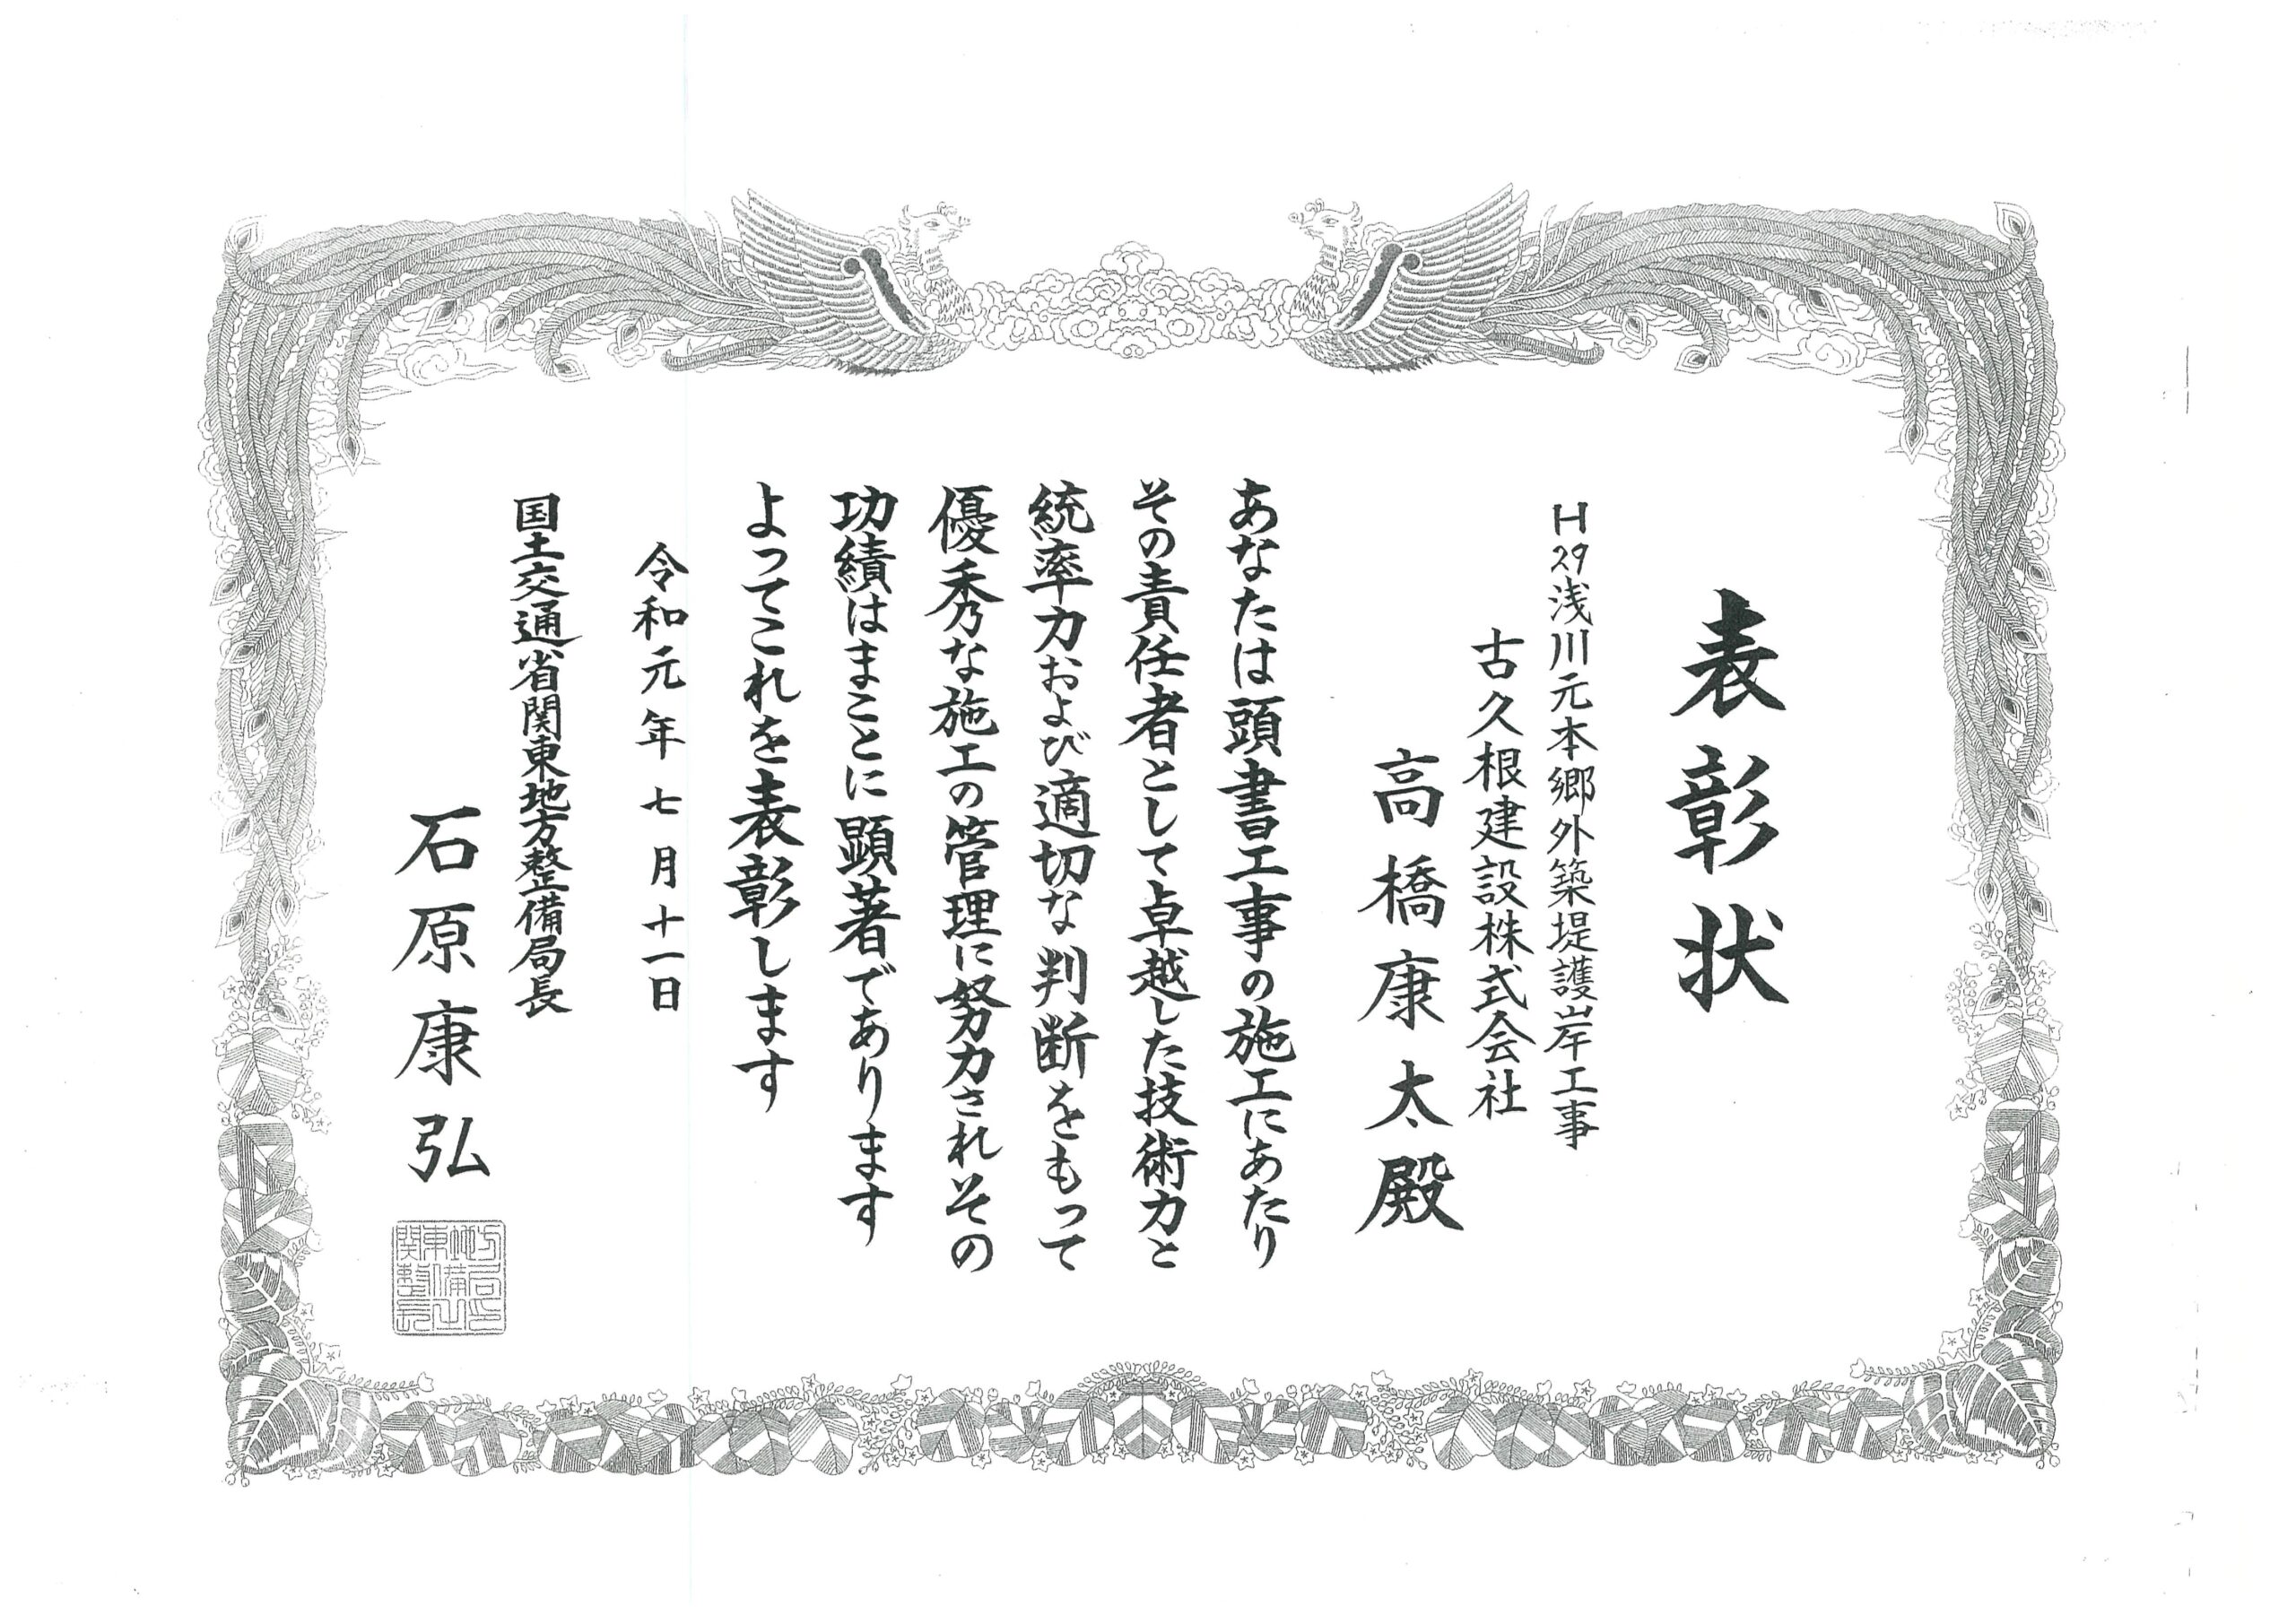 表彰状
H29浅川元本郷外築堤護岸工事
古久根建設株式会社
高橋康太殿
あなたは頭書工事の施工にあたり
その責任者として卓越した技術力と
統率力および適切な判断をもって
優秀な施工の管理に努力されその
功績はまことに顕著であります
よってこれを表彰します
令和元年七月十一日
国土交通省関東地方整備局長
石原康弘